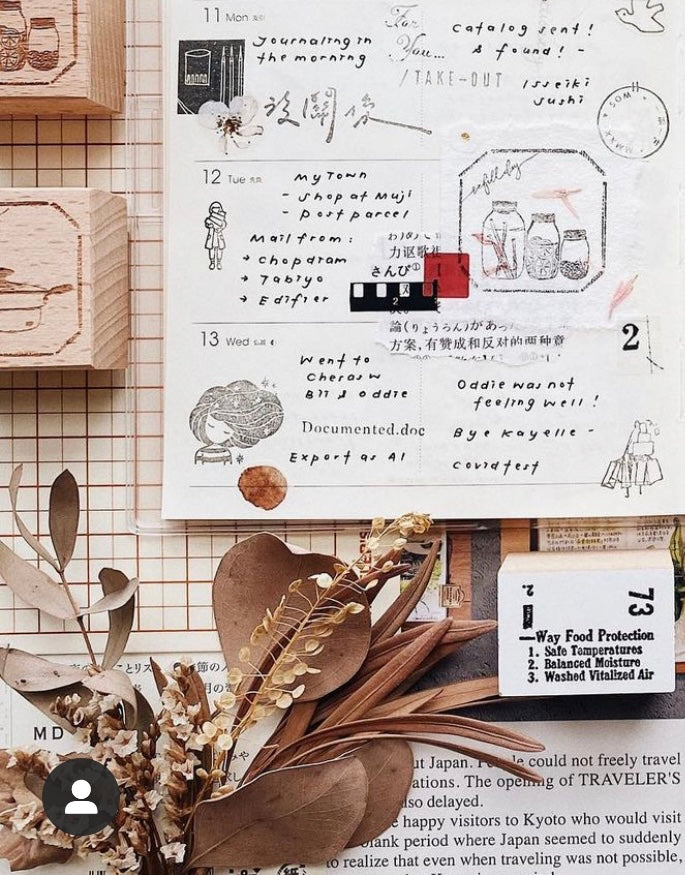 11 Mon
Journaling in
the morning
For
You...
/TAKE-OUT
catalog sent!
& found! -
Isseiki
sushi
12 Tue
My Town
- shop at Muji
- post parcel
Mail from:
→ chopdram
→ Tabiyo
→ Edifier
refill day
力讴歌
さんび①
2
論(りょうらん)があっ
方案,有赞成和反对的两种意
2
13 Wed
Went to
Cheras w
Bii & Oddie
Documented.doc
Export as AI
Oddie was not
feeling well!
Bye Kayelle -
covid test
2.
73
Way Food Protection
1. Safe Temperatures
2. Balanced Moisture
3. Washed Vitalized Air
MD
ut Japan. People could not freely travel
ations. The opening of TRAVELER'S
lso delayed.
e happy visitors to Kyoto who would visit
blank period where Japan seemed to suddenly
to realize that even when traveling was not possible,